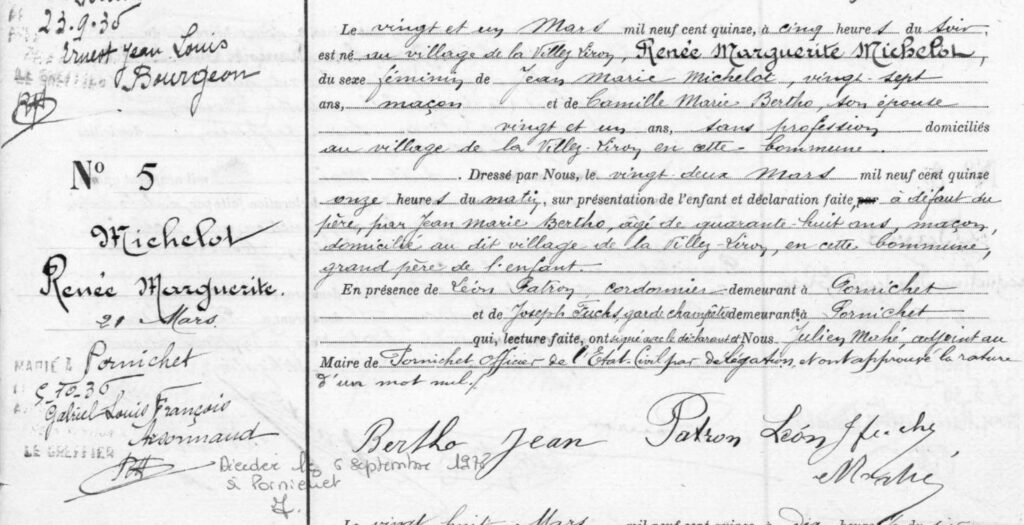 23-9-35
Ernest Jean Louis
Bourgeon
LE GREFFIER
Le vingt et un Mars mil neuf cent quinze, à cinq heures du soir
est né au village de la Villez-Liroy, Renée Marguerite Michelot,
du sexe féminin de Jean Marie Michelot, vingt-sept
ans, maçon et de Camille Marie Bertho, son épouse
vingt et un ans, sans profession domiciliés
au village de la Villez-Liroy en cette commune.
Dressé par Nous, le vingt deux Mars mil neuf cent quinze
onze heures du matin, sur présentation de l'enfant et déclaration faite par à défaut du
père, par Jean Marie Bertho, âgé de quarante-huit ans, maçon,
domicilié au dit village de la Villez-Liroy, en cette commune,
grand père de l'enfant.
En présence de Léon Patron, cordonnier demeurant à Pornichet
et de Joseph Fuchs, garde champêtre demeurant à Pornichet
qui, lecture faite, ont signé avec le déclarant et Nous Julien Mahé, adjoint au
Maire de Pornichet, Officier de l'Etat Civil par délégation, et ont approuvé la rature
d'un mot nul.
Bertho Jean Patron Léon
Mahé
No 5
Michelot
Renée Marguerite.
21 Mars.
MARIÉ A Pornichet
5-10-36
Gabriel Louis François
LE GREFFIER
Décédée le 6 Septembre
à Pornichet
Le vingt huit Mars mil neuf cent quinze à dix heures du